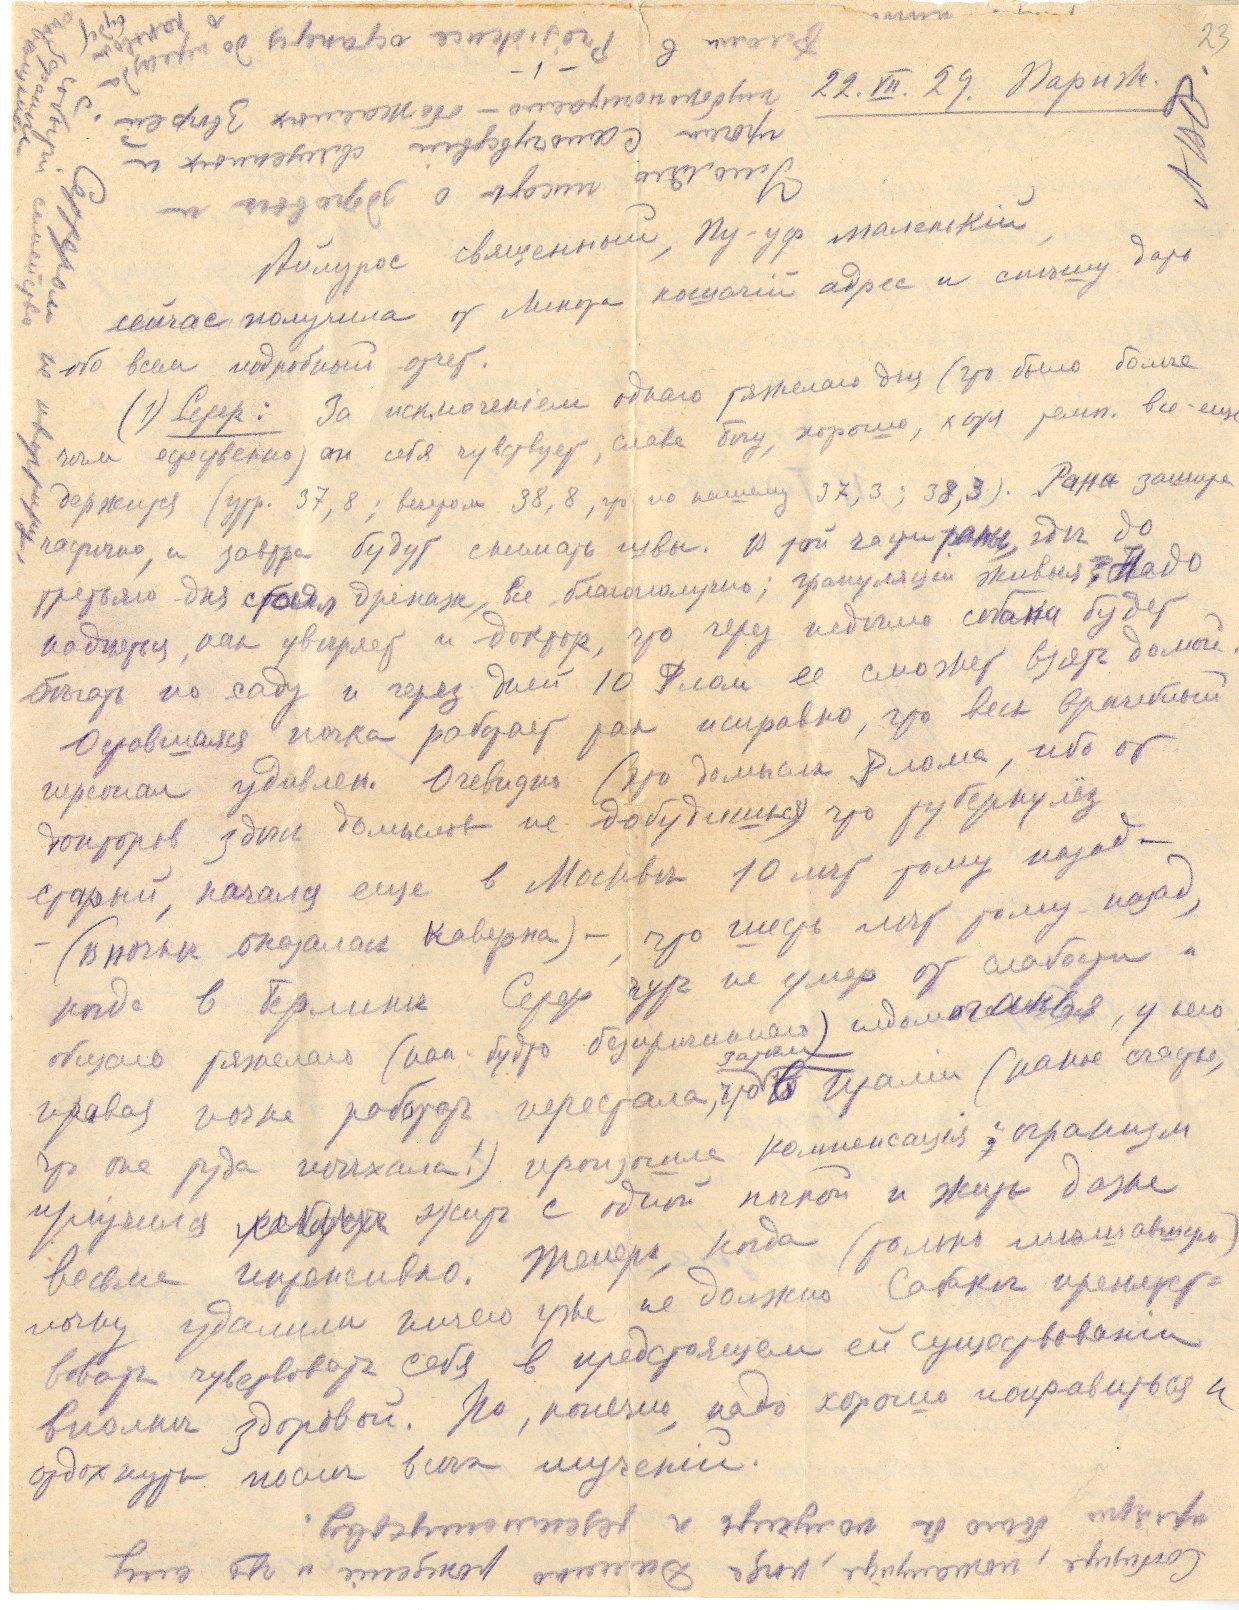 23
22.VII.29. Париж.
Айлурос священный, Пу-уф маленькій,
сейчас получила от кошачій адрес и спѣшу дать
обо всем подробный отчет.
(1) Серж: За исключеніем однаго тяжелаго дня (что было более
чем естественно) он себя чувствует, слава Богу, хорошо, хотя темп. все-еще
держится (утр. 37,8; вечером 38,8, что по нашему 37,3; 38,3). Рана зашита
частично, и завтра будут снимать швы. В той части раны, гдѣ до
третьяго дня стоял дренаж, все благополучно; грануляціи живыя. Надо
надѣяться, как увѣряет и доктор, что через недѣлю собака будет
бѣгать по саду и через дней 10 Флом ее сможет взять домой.
Оставшаяся почка работает так исправно, что весь врачебный
персонал удивлен. Очевидно (это домысли Флома, ибо от
докторов здѣсь домыслов не добудишься) что туберкулёз
старый, начался еще в Москвѣ 10 лѣт тому назад —
— (в почкѣ оказалась каверна) —, что шесть лѣт тому назад,
когда в Берлинѣ Серж чуть не умер от слабости и
общаго тяжелаго (как-будто безпричиннаго) недомоганья, у него
правая почка работать перестала, что затем в Италіи (какое счастье,
что она туда поѣхала!) произошла компенсація и организм
пріучился жить с одной почкой и жить даже
весьма интенсивно. Теперь, когда (только мѣшавшую)
почку удалили ничего уже не должно Собакѣ препятст=
вовать чувствовать себя в предстоящем ей существованіи
вполнѣ здоровой. Но, конечно, надо хорошо поправиться и
отдохнуть послѣ всѣх мученій.
Сообщите, пожалуйста, когда рожденіе и что ему
было бы получить к
Умоляю писать о здоровьи и
прочих Самочувствій священных и
глубокочтимо-обожаемых Звѣрей.
в Providence останусь до